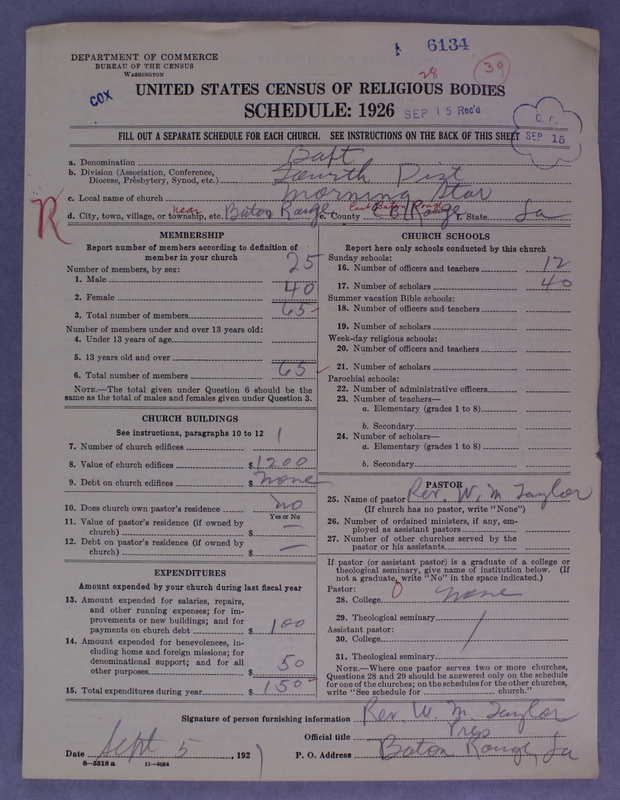 6134
DEPARTMENT OF COMMERCE
BUREAU OF THE CENSUS
WASHINGTON
28
39
COX
UNITED STATES CENSUS OF RELIGIOUS BODIES
SCHEDULE: 1926
SEP 15 Rec'd
C. C.
SEP 15
FILL OUT A SEPARATE SCHEDULE FOR EACH CHURCH. SEE INSTRUCTIONS ON THE BACK OF THIS SHEET
a. Denomination Bapt
b. Division (Association, Conference,
Diocese, Presbytery, Synod, etc.) Fourth Dist
c. Local name of church Morning Star
R
d. City, town, village, or township, etc. near Baton Rouge e. County East Baton Rouge E B Rouge f. State La
MEMBERSHIP
Report number of members according to definition of
member in your church
Number of members, by sex:
1. Male 25
2. Female 40
3. Total number of members 65
Number of members under and over 13 years old:
4. Under 13 years of age
5. 13 years old and over
6. Total number of members 65
NOTE.—The total given under Question 6 should be the
same as the total of males and females given under Question 3.
CHURCH BUILDINGS
See instructions, paragraphs 10 to 12
7. Number of church edifices 1
8. Value of church edifices $ 1200
9. Debt on church edifices $ none
10. Does church own pastor's residence no
Yes or No
11. Value of pastor's residence (if owned by
church) $ —
12. Debt on pastor's residence (if owned by
church) $ —
EXPENDITURES
Amount expended by your church during last fiscal year
13. Amount expended for salaries, repairs,
and other running expenses; for im-
provements or new buildings; and for
payments on church debt $ 100
14. Amount expended for benevolences, in-
cluding home and foreign missions; for
denominational support; and for all
other purposes $ 50
15. Total expenditures during year $ 150
CHURCH SCHOOLS
Report here only schools conducted by this church
Sunday schools:
16. Number of officers and teachers 12
17. Number of scholars 40
Summer vacation Bible schools:
18. Number of officers and teachers
19. Number of scholars
Week-day religious schools:
20. Number of officers and teachers
21. Number of scholars
Parochial schools:
22. Number of administrative officers
23. Number of teachers—
a. Elementary (grades 1 to 8)
b. Secondary
24. Number of scholars—
a. Elementary (grades 1 to 8)
b. Secondary
PASTOR
25. Name of pastor Rev. W. M Taylor
(If church has no pastor, write "None")
26. Number of ordained ministers, if any, em-
ployed as assistant pastors
27. Number of other churches served by the
pastor or his assistants
If pastor (or assistant pastor) is a graduate of a college or
theological seminary, give name of institution below. (If
not a graduate, write "No" in the space indicated.)
Pastor:
28. College 0 none
29. Theological seminary
Assistant pastor:
30. College
31. Theological seminary
NOTE.—Where one pastor serves two or more churches,
Questions 28 and 29 should be answered only on the schedule
for one of the churches; on the schedules for the other churches,
write "See schedule for church."
Signature of person furnishing information Rev. W. M. Taylor
Official title Pres
Date Sept 5, 192 P. O. Address Baton Rouge, La
8-5518a 11-9024